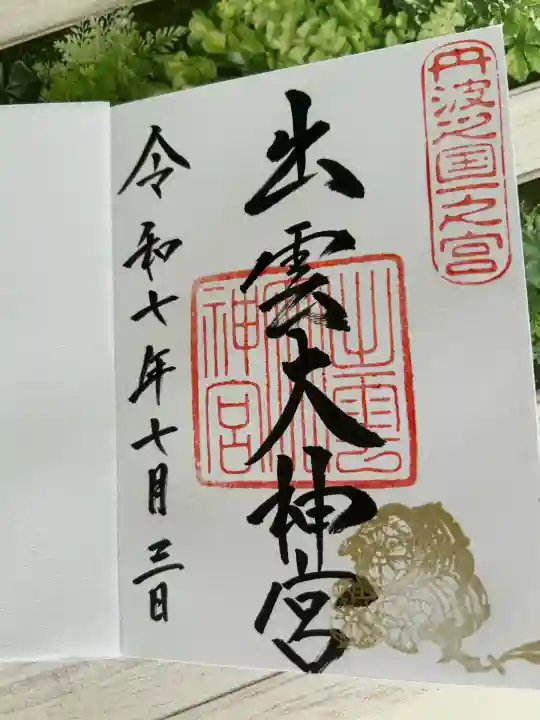 丹波之国一之宮
出雲大神宮
出雲大神宮
令和七年七月三日